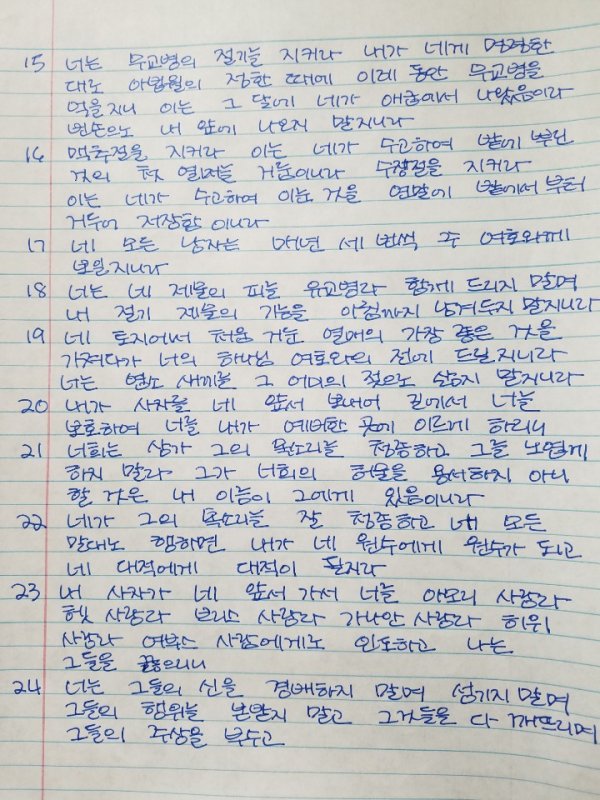 15 너는 무교병의 절기를 지키라 내가 네게 명령한
대로 아빕월의 정한 때에 이레 동안 무교병을
먹을지니 이는 그 달에 네가 애굽에서 나왔음이라
빈손으로 내 앞에 나오지 말지니라
16 맥추절을 지키라 이는 네가 수고하여 밭에 뿌린
것의 첫 열매를 거둠이니라 수장절을 지키라
이는 네가 수고하여 이룬 것을 연말에 밭에서부터
거두어 저장함이니라
17 네 모든 남자는 매년 세 번씩 주 여호와께
보일지니라
18 너는 네 제물의 피를 유교병과 함께 드리지 말며
내 절기 제물의 기름을 아침까지 남겨두지 말지니라
19 네 토지에서 처음 거둔 열매의 가장 좋은 것을
가져다가 너의 하나님 여호와의 전에 드릴지니라
너는 염소 새끼를 그 어미의 젖으로 삶지 말지니라
20 내가 사자를 네 앞서 보내어 길에서 너를
보호하여 너를 내가 예비한 곳에 이르게 하리니
21 너희는 삼가 그의 목소리를 청종하고 그를 노엽게
하지 말라 그가 너희의 허물을 용서하지 아니
할 것은 내 이름이 그에게 있음이니라
22 네가 그의 목소리를 잘 청종하고 내 모든
말대로 행하면 내가 네 원수에게 원수가 되고
네 대적에게 대적이 될지라
23 내 사자가 네 앞서 가서 너를 아모리 사람과
헷 사람과 브리스 사람과 가나안 사람과 히위
사람과 여부스 사람에게로 인도하고 나는
그들을 끊으리니
24 너는 그들의 신을 경배하지 말며 섬기지 말며
그들의 행위를 본받지 말고 그것들을 다 깨뜨리며
그들의 주상을 부수고